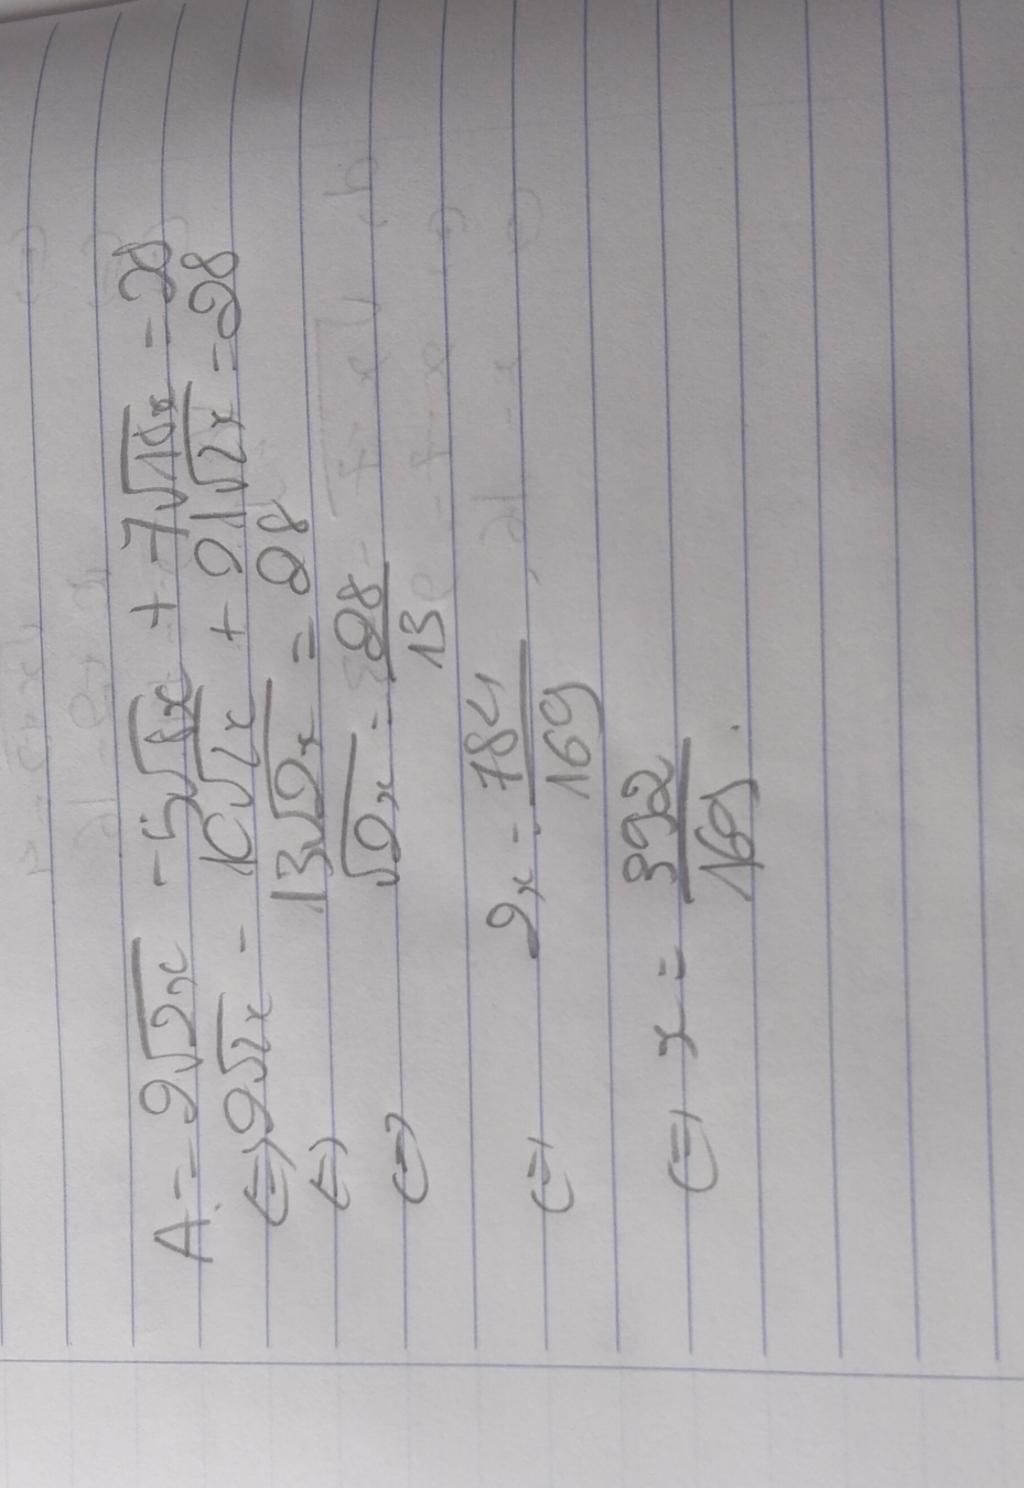 A = 9√2x - 5√8x + 7√18x = 28
<=> 9√2x - 10√2x + 21√2x = 28
<=> 13√2x = 28
<=> √2x = 28/13
<=> 2x = 784/169
<=> x = 392/169.